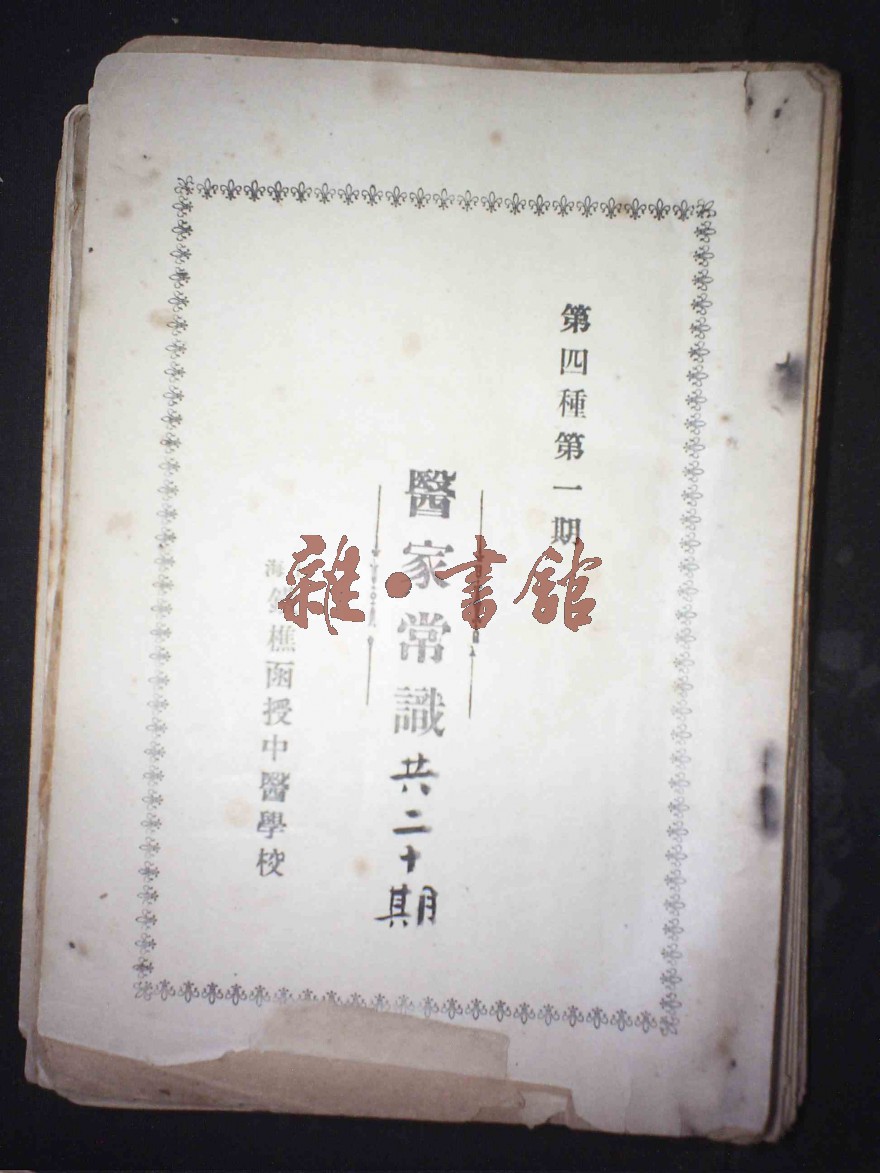 第四種第一期
醫家常識
共二十期
海鐵樵函授中醫學校
雜·書館